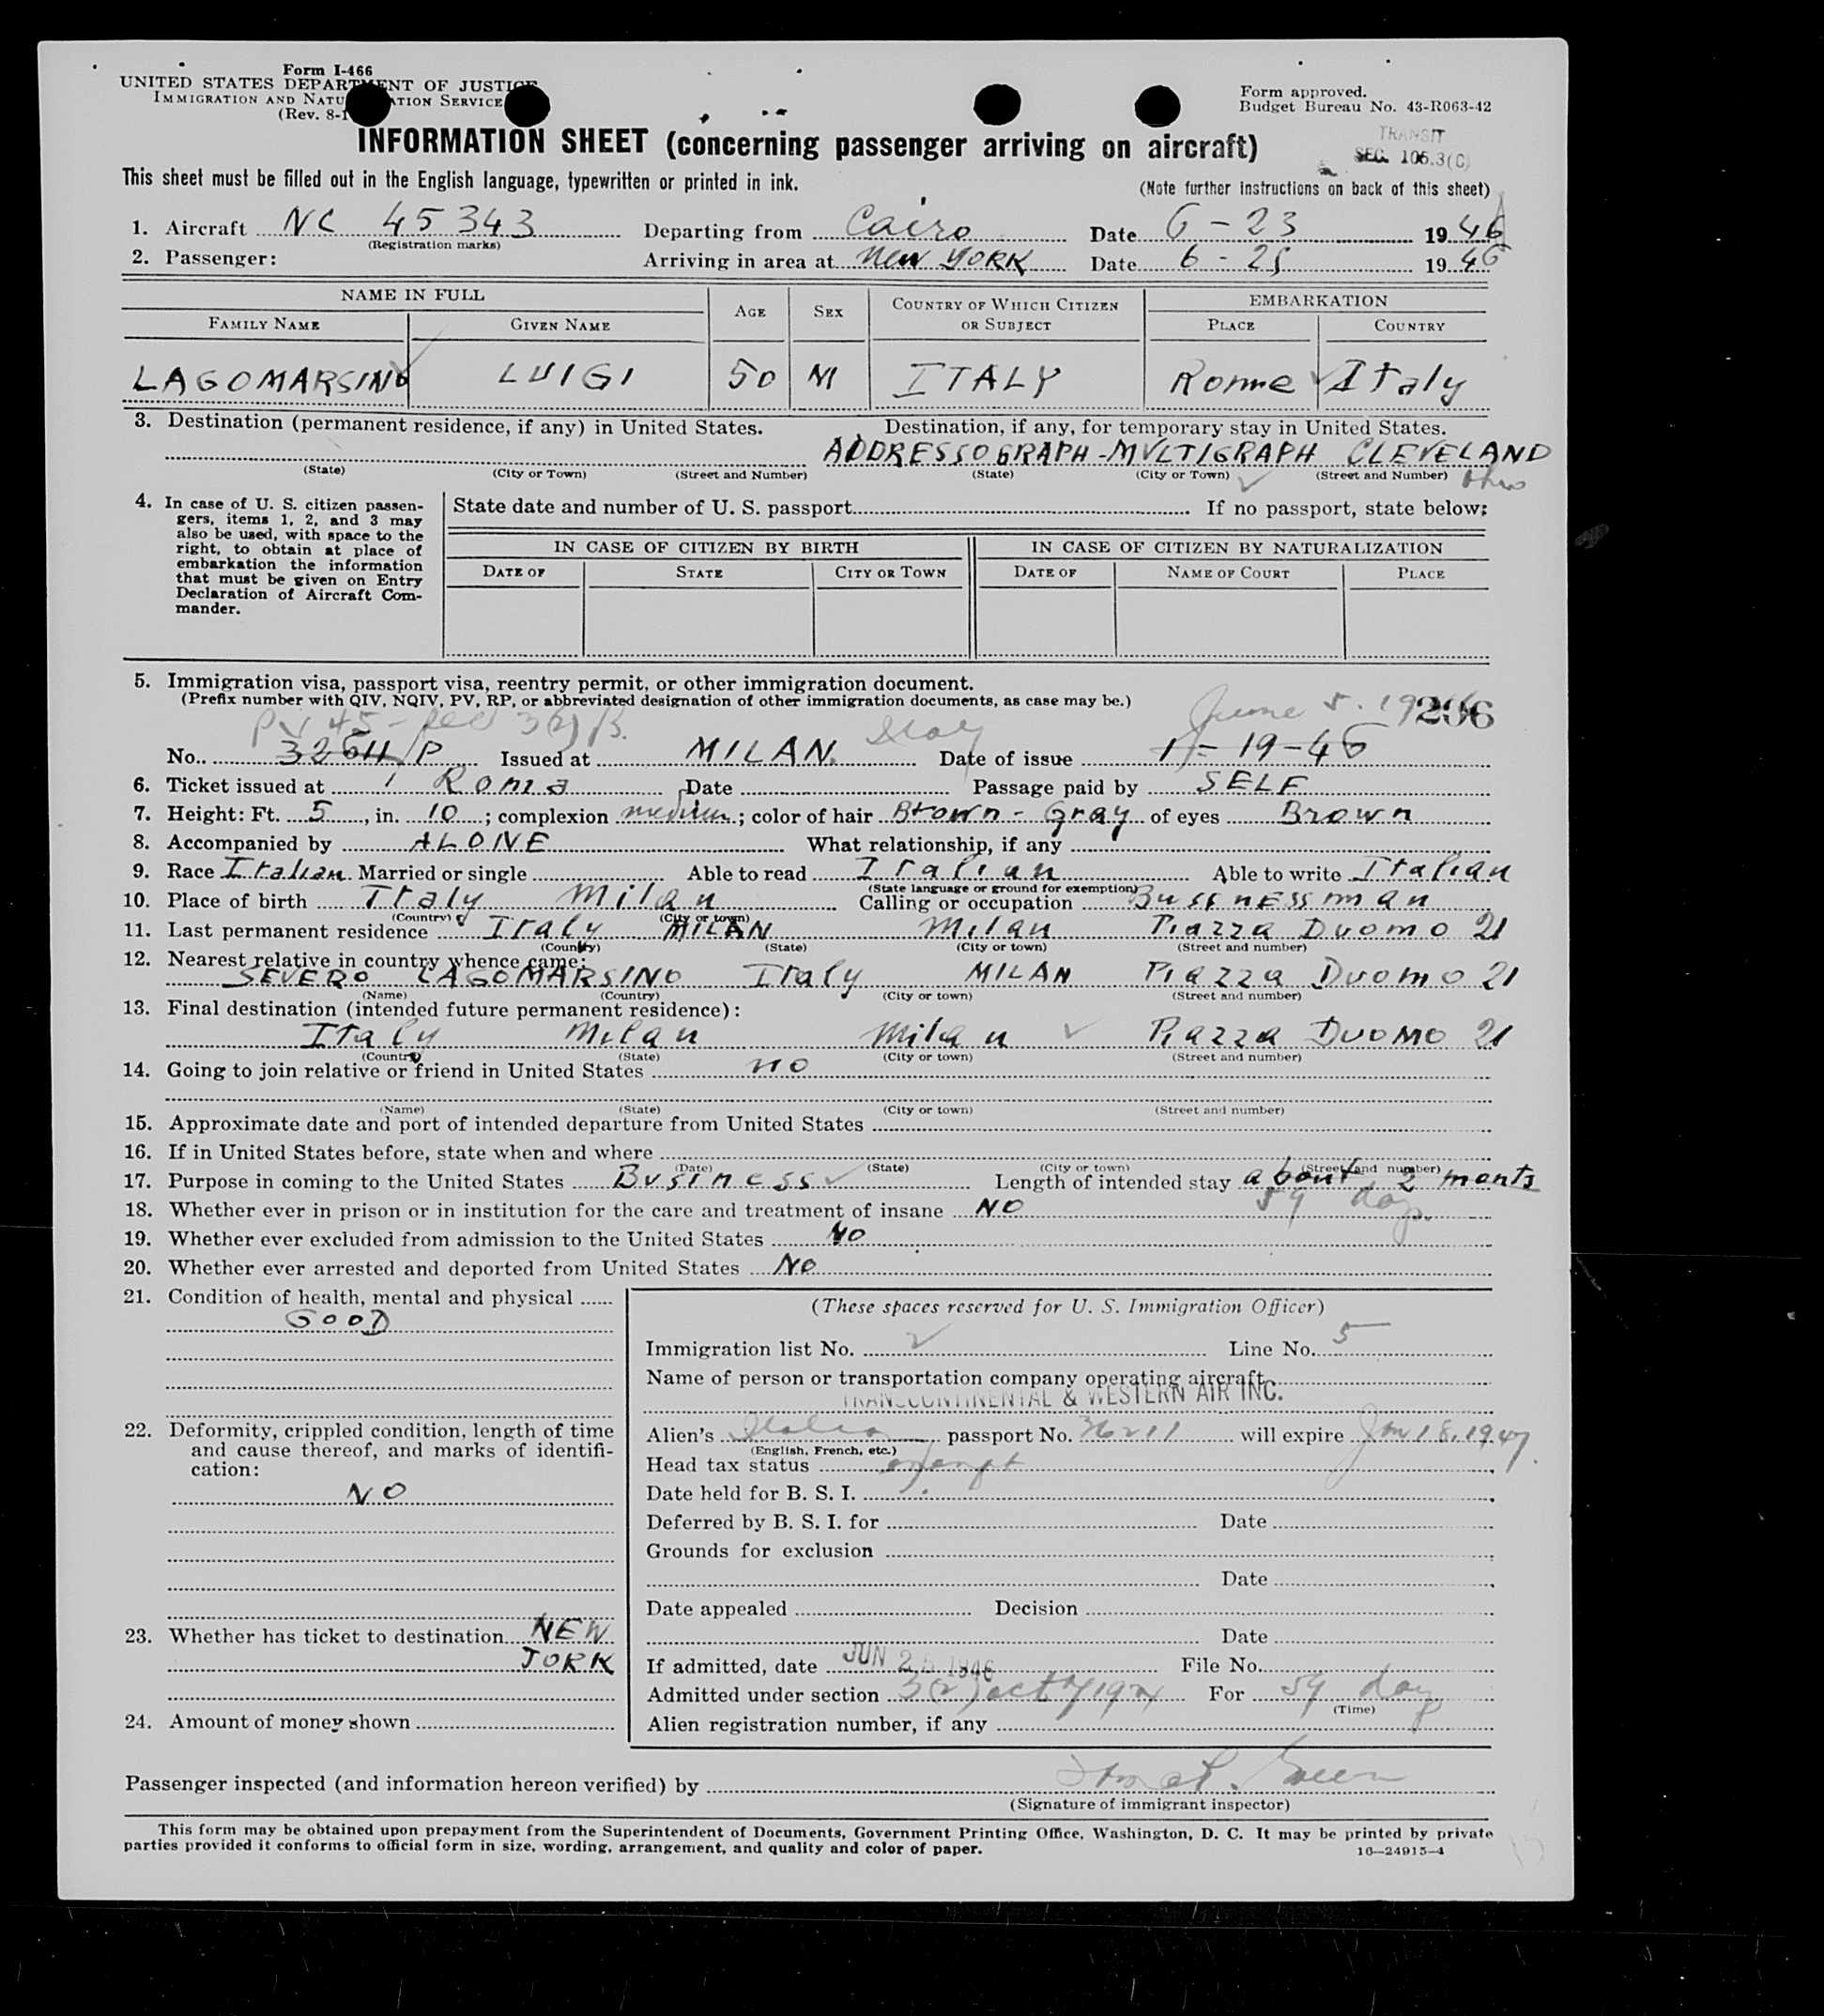 Form I-466
UNITED STATES DEPARTMENT OF JUSTICE
IMMIGRATION AND NATU ATION SERVICE
(Rev. 8-1
Form approved.
Budget Bureau No. 43-R063-42
INFORMATION SHEET (concerning passenger arriving on aircraft)
TRANSIT
SEC. 106.3(C)
This sheet must be filled out in the English language, typewritten or printed in ink.
(Note further instructions on back of this sheet)
1. Aircraft NC 45343 Departing from Cairo Date 6-23 1946
(Registration marks)
2. Passenger: Arriving in area at New YORK Date 6-25 1946
NAME IN FULL AGE SEX COUNTRY OF WHICH CITIZEN OR SUBJECT EMBARKATION
FAMILY NAME GIVEN NAME PLACE COUNTRY
LAGOMARSINO LUIGI 50 M ITALY Rome Italy
3. Destination (permanent residence, if any) in United States. Destination, if any, for temporary stay in United States.
ADDRESSOGRAPH-MULTIGRAPH CLEVELAND
(State) (City or Town) (Street and Number) (State) (City or Town) (Street and Number) Ohio
4. In case of U. S. citizen passengers, items 1, 2, and 3 may also be used, with space to the right, to obtain at place of embarkation the information that must be given on Entry Declaration of Aircraft Commander.
State date and number of U. S. passport If no passport, state below:
IN CASE OF CITIZEN BY BIRTH IN CASE OF CITIZEN BY NATURALIZATION
DATE OF STATE CITY OR TOWN DATE OF NAME OF COURT PLACE
5. Immigration visa, passport visa, reentry permit, or other immigration document.
(Prefix number with QIV, NQIV, PV, RP, or abbreviated designation of other immigration documents, as case may be.)
PV 45- 3(2) Italy June 5. 19 206
No. 3264/P Issued at MILAN. Date of issue 1-19-46
6. Ticket issued at Roma Date Passage paid by SELF
7. Height: Ft. 5, in. 10; complexion medium; color of hair Brown-Gray of eyes Brown
8. Accompanied by ALONE What relationship, if any
9. Race Italian Married or single Able to read Italian Able to write Italian
(State language or ground for exemption)
10. Place of birth Italy Milan Calling or occupation Bussnessman
(Country) (City or town)
11. Last permanent residence Italy MILAN Milan Piazza Duomo 21
(Country) (State) (City or town) (Street and number)
12. Nearest relative in country whence came:
SEVERO LAGOMARSINO Italy MILAN Piazza Duomo 21
(Name) (Country) (City or town) (Street and number)
13. Final destination (intended future permanent residence):
Italy Milan Milan Piazza DUOMO 21
(Country) (State) (City or town) (Street and number)
14. Going to join relative or friend in United States no
(Name) (State) (City or town) (Street and number)
15. Approximate date and port of intended departure from United States
16. If in United States before, state when and where
(Date) (State) (City or town) (Street and number)
17. Purpose in coming to the United States Business Length of intended stay about 2 monts
59 days.
18. Whether ever in prison or in institution for the care and treatment of insane NO
19. Whether ever excluded from admission to the United States NO
20. Whether ever arrested and deported from United States NO
21. Condition of health, mental and physical
GOOD
22. Deformity, crippled condition, length of time and cause thereof, and marks of identification:
NO
23. Whether has ticket to destination NEW
JORK
24. Amount of money shown
(These spaces reserved for U. S. Immigration Officer)
Immigration list No. Line No. 5
Name of person or transportation company operating aircraft
TRANSCONTINENTAL & WESTERN AIR INC.
Alien's Italian passport No. 36211 will expire Jan 18, 1947.
(English, French, etc.)
Head tax status exempt
Date held for B. S. I.
Deferred by B. S. I. for Date
Grounds for exclusion
Date
Date appealed Decision
Date
If admitted, date JUN 25 1946 File No.
Admitted under section 3(2) act of 1924 For 59 days
(Time)
Alien registration number, if any
Passenger inspected (and information hereon verified) by
(Signature of immigrant inspector)
This form may be obtained upon prepayment from the Superintendent of Documents, Government Printing Office, Washington, D. C. It may be printed by private
parties provided it conforms to official form in size, wording, arrangement, and quality and color of paper.
16—24915-4